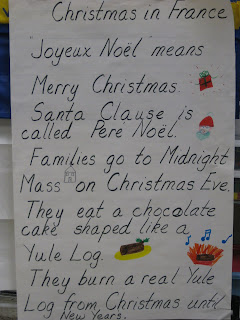 Christmas in France
"Joyeux Noël" means
Merry Christmas.
Santa Clause is
called Père Noël.
Families go to Midnight
Mass on Christmas Eve.
They eat a chocolate
cake shaped like a
Yule Log.
They burn a real Yule
Log from Christmas until
New Years.